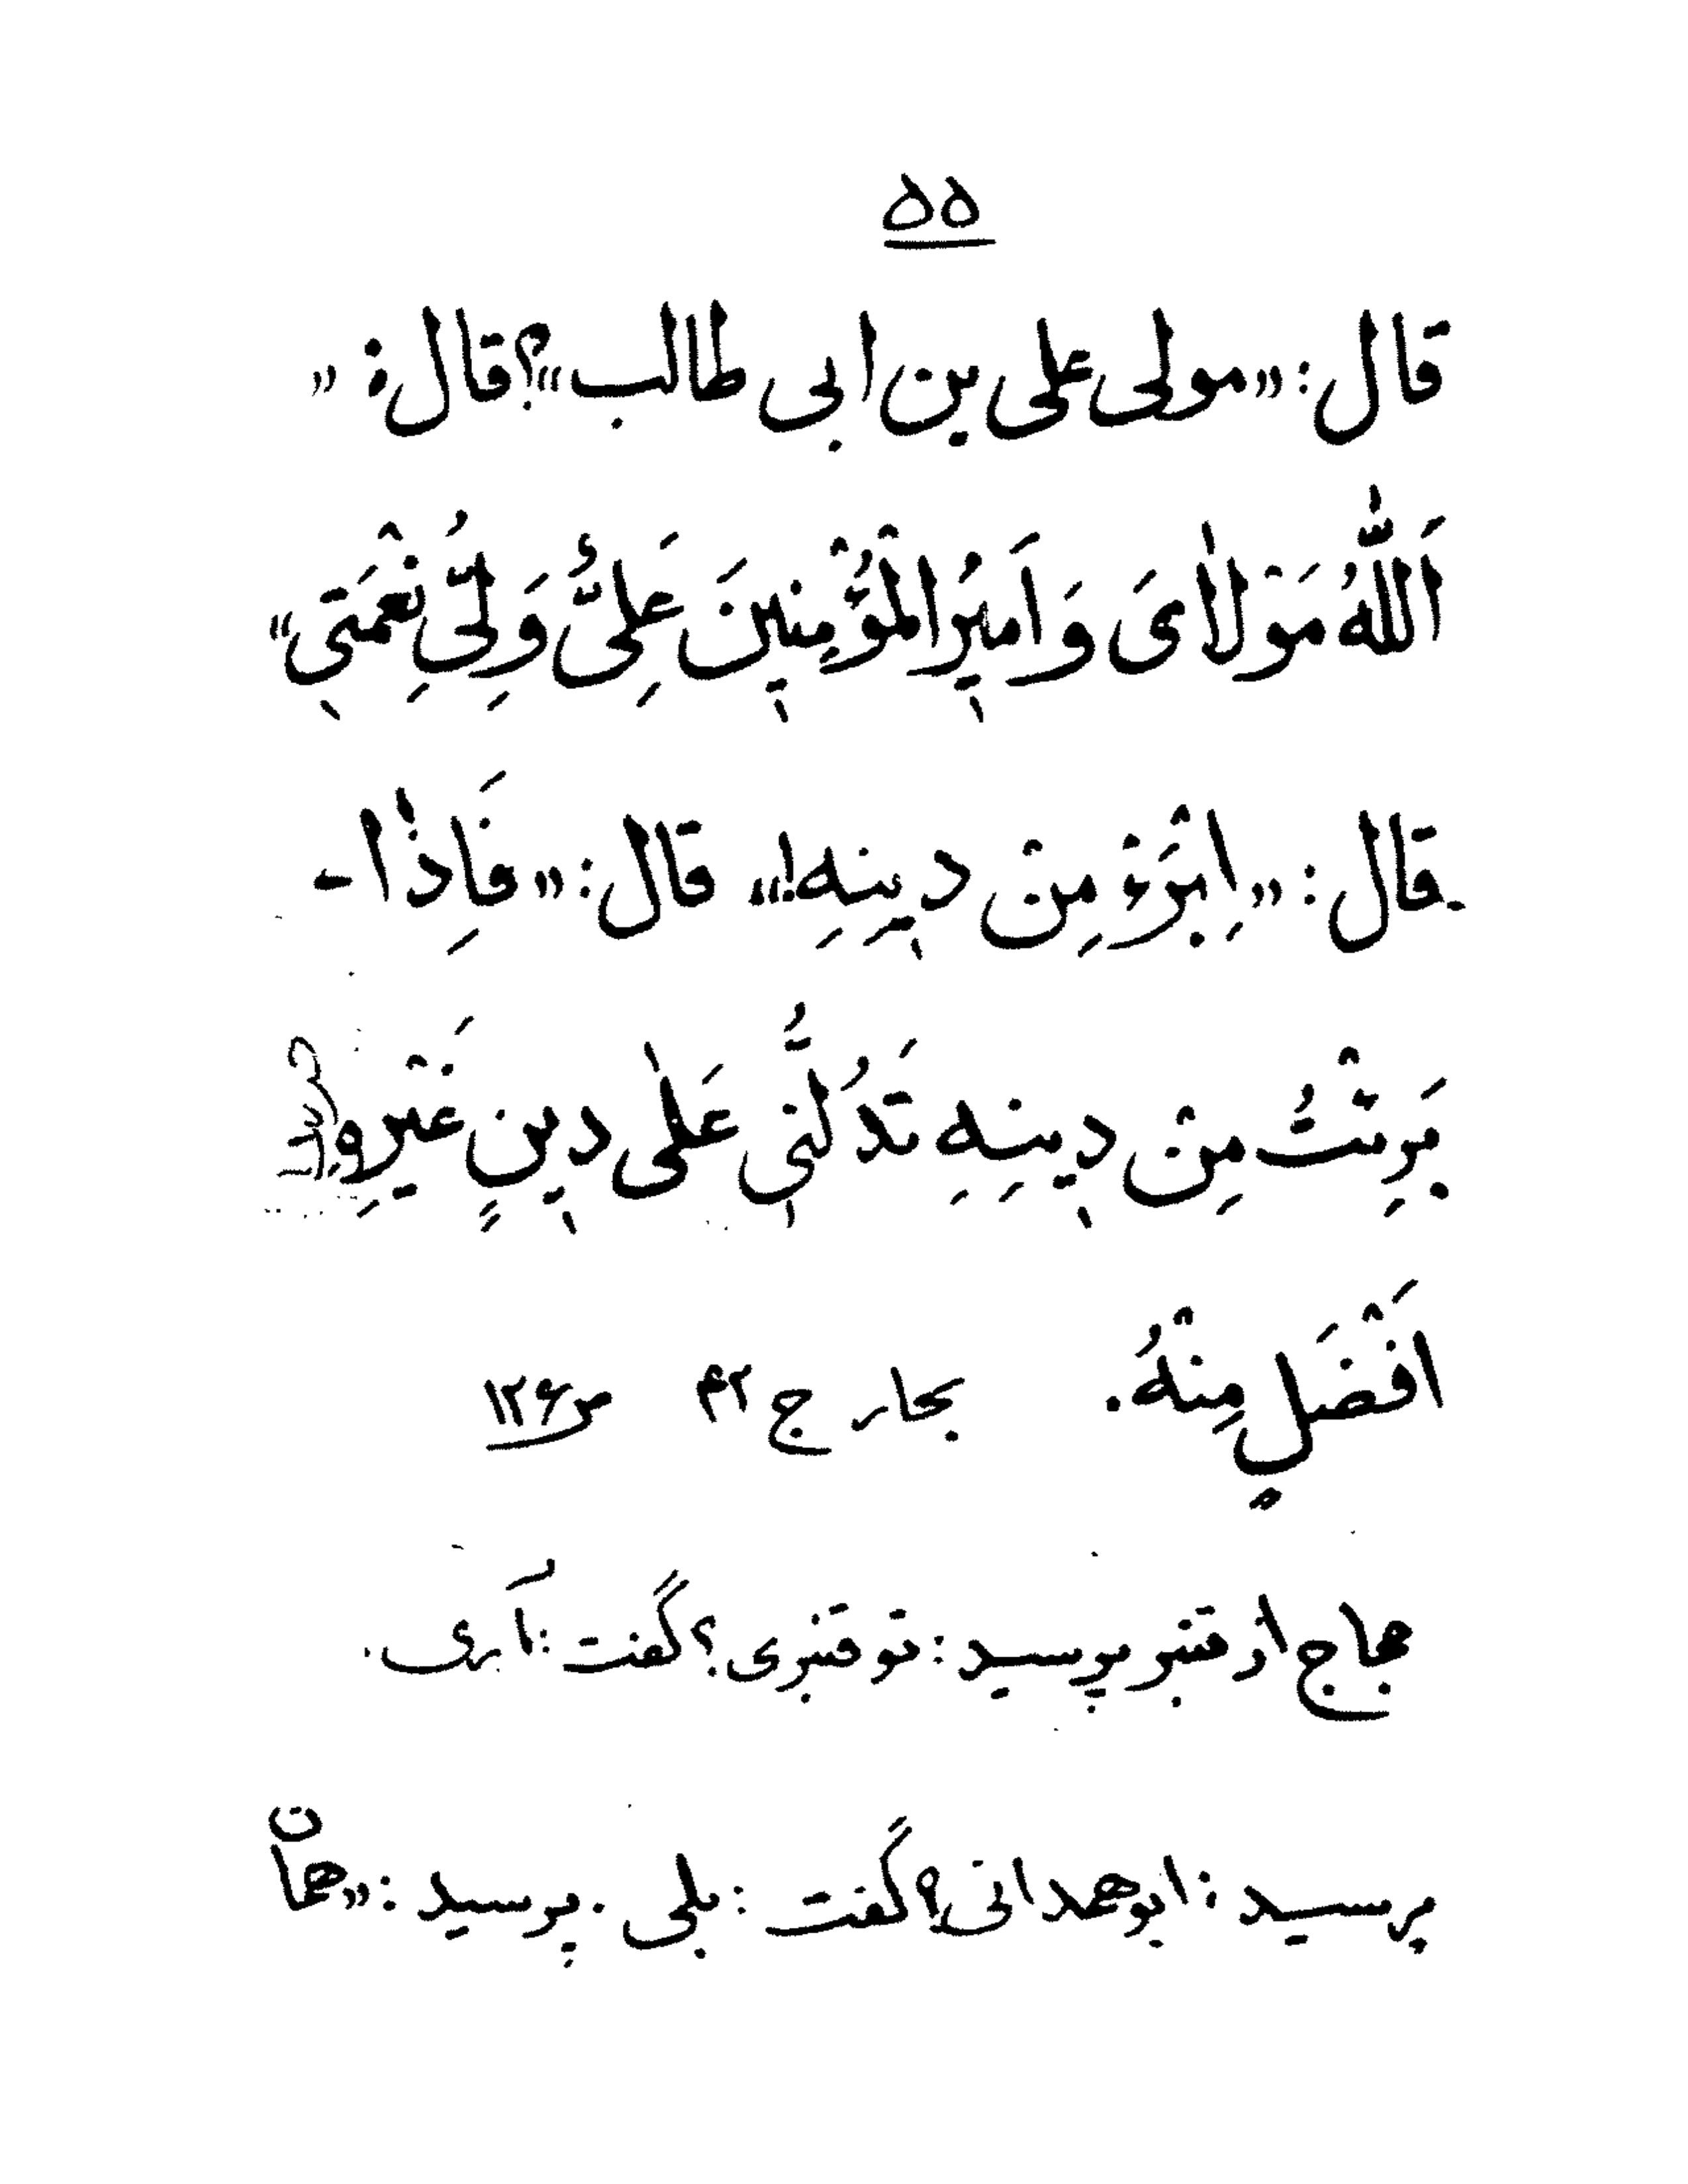 ۵۵
قال: «مولی علی بن ابی طالب»؟ قال: «
اَللّٰهُ مَوْلاٰیَ وَ اَمیٖرُ الْمُؤْمِنیٖنَ عَلِیٌّ وَلِیُّ نِعْمَتیٖ»
قال: «اِبْرَءْ مِنْ دیٖنِهِ!» قال: «فَاِذٰا -
بَرِئْتُ مِنْ دیٖنِهِ تَدُلُّنیٖ عَلٰی دیٖنٍ غَیْرِهِ
اَفْضَلٍ مِنْهُ. بحار ج ۴۲ ص ۱۲۶
حجاج از قنبر پرسید: تو قنبری؟ گفت: آری.
پرسید: ابو همدانی؟ گفت: بلی. پرسید: «همان